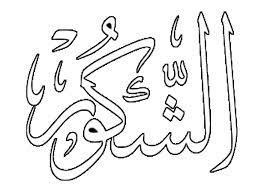 الشَّكُورُ